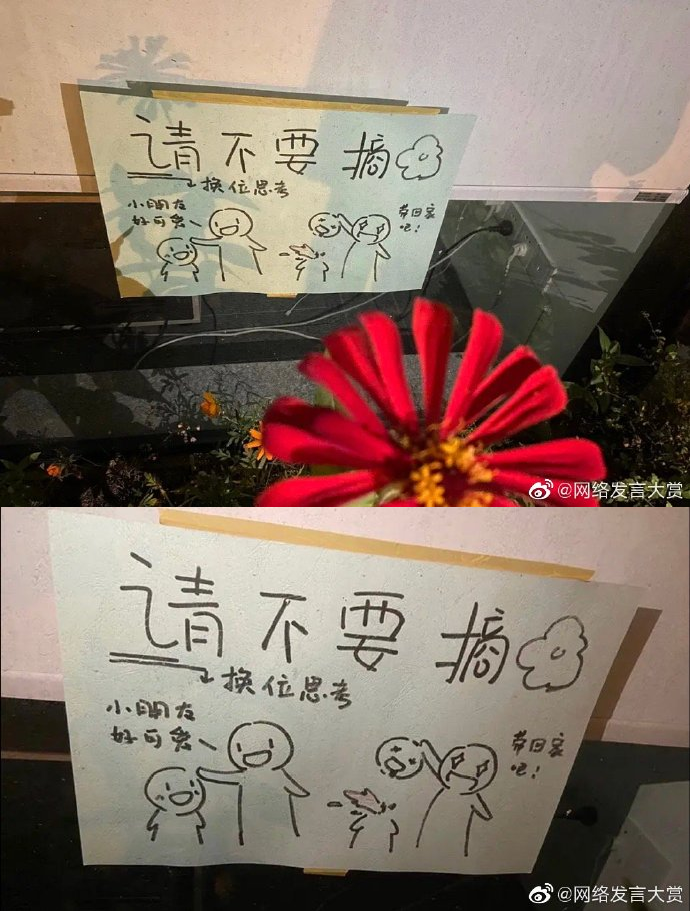 请不要摘
换位思考
小朋友
好可爱
带回家
吧！
@网络发言大赏
请不要摘
换位思考
小朋友
好可爱
带回家
吧！
@网络发言大赏